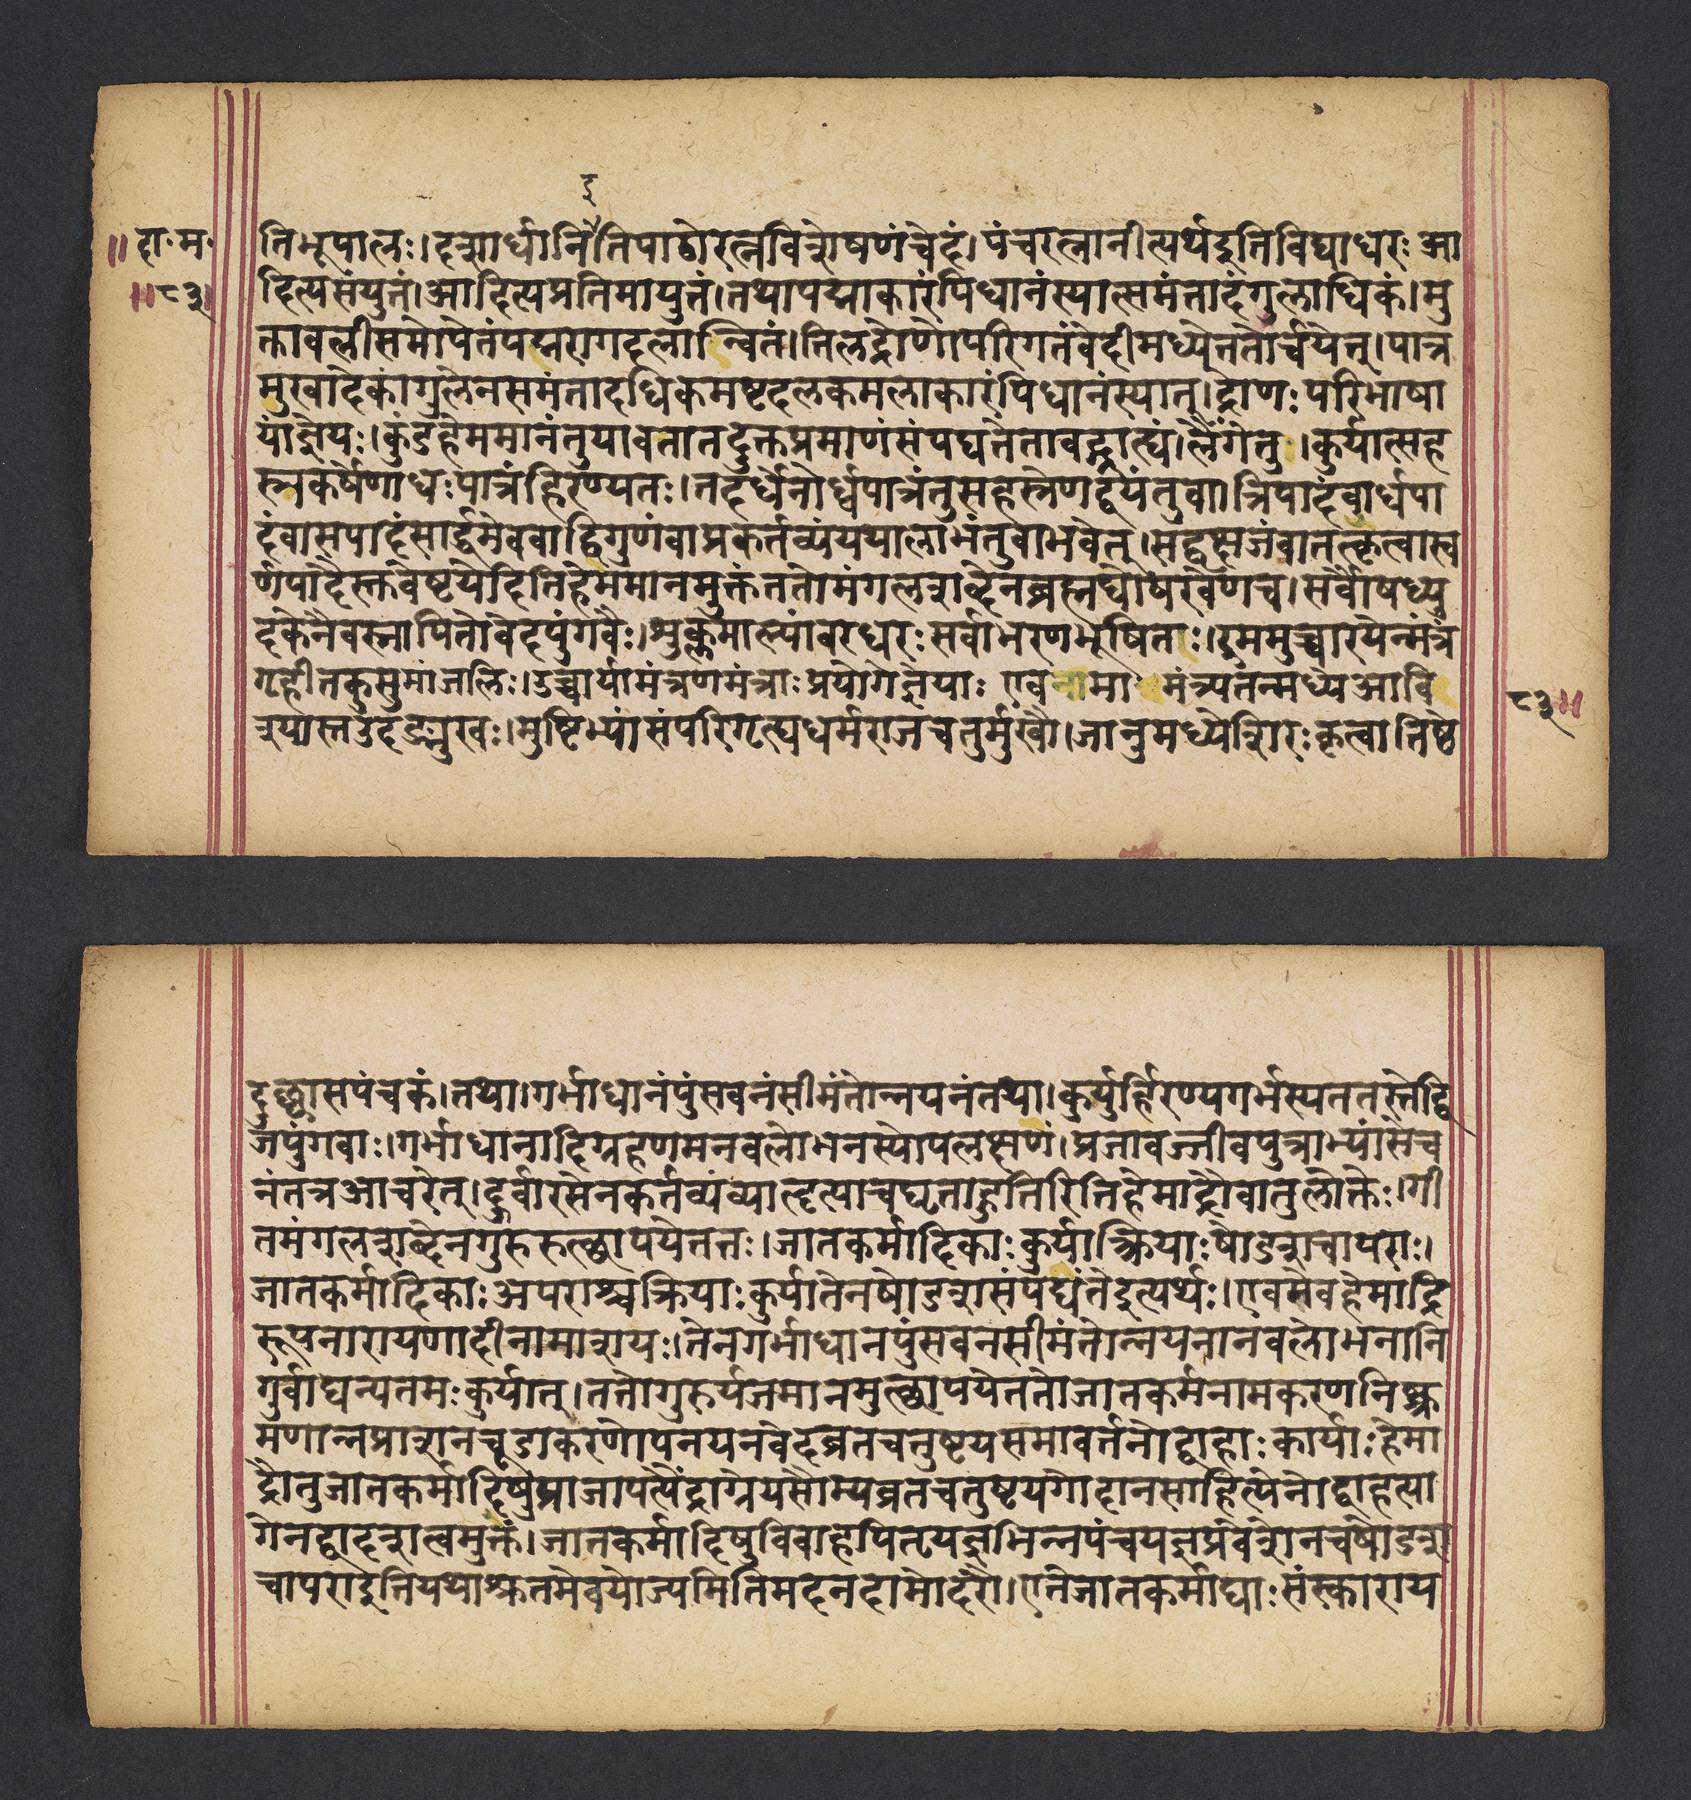 ॥दा॰म॰
॥८३॥
इ
तिभूपालः।दशार्धानितिपाठोरत्नविशेषणंचेदं।पंचरत्नानीत्यर्थइतिविद्याधरः आ
दित्यसंयुतं।आदित्यप्रतिमायुतं।तथापद्माकारंपिधानंस्यात्समंतादंगुलाधिकं।मु
क्तावलीसमोपेतंपद्मरागदलान्वितं।तिलद्रोणोपरिगतंवेदीमध्येततोर्च्चयेत्।पात्र
मुखादेकांगुलेनसमंतादधिकमष्टदलकमलाकारंपिधानंस्यात्।द्रोणःपरिभाषा
यांज्ञेयः।कुंडहेममानंतुयावतातदुक्तप्रमाणंसंपद्यतेतावद्ग्राह्यं।लैंगेतु।कुर्यात्सह
स्त्रकर्षेणाधःपात्रंहिरण्यतः।तदर्धेनोर्ध्वपात्रंतुसहस्त्रेणद्वयंतुवा।त्रिपादंवार्धपा
दंवासपादंसार्द्धमेववाद्विगुणंवाप्रकर्तव्यंयथालाभंतुवाभवेत्।सद्वृक्षजंवातत्कृत्वास्व
र्णपादैस्तवेष्टयेदितिहेममानमुक्तंततोमंगलशब्देनब्रह्मघोषरवेणच।सर्वौषध्यु
दकेनैवस्नापितोवेदपुंगवैः।शुक्लमाल्यांबरधरःसर्वाभरणभूषितः।इममुच्चारयेन्मंत्रं
गृहीतकुसुमांजलिः।उच्चार्यामंत्रणमंत्राःप्रयोगेज्ञेयाः एवमामंत्र्यतन्मध्येआवि
श्यास्तउदङ्मुखः।मुष्टिभ्यांसंपरिगृत्द्यधर्मराजचतुर्मुखौ।जानुमध्येशिरःकृत्वातिष्ठे
८३॥
दुच्छ्वासपंचकं।तथा।गर्भाधानंपुंसवनंसीमंतोन्नयनंतथा।कुर्युर्हिरण्यगर्भस्यततस्तेद्वि
जपुंगवाः।गर्भाधानादिग्रहणमनवलोभनस्योपलक्षणं।प्रजावज्जीवपुत्राभ्यांसेच
नंतत्रआचरेत्।दूर्वारसेनकर्तव्यंव्याहृत्याचघृताहुतिरितिहेमाद्रौवातुलोक्तेः।गी
तमंगलशब्देनगुरुरुत्थापयेत्ततः।जातकर्मादिकाःकुर्यात्क्रियाःषोडशचापराः।
जातकर्मादिकाःअपराश्चक्रियाःकुर्यात्तेनषोडशसंपद्यंतेइत्यर्थः।एवमेवहेमाद्रि
रूपनारायणादीनामाशयः।तेनगर्भाधानपुंसवनसीमंतोन्नयनानवलोभनानि
गुर्वाद्यन्यतमःकुर्यात्।ततोगुरुर्यजमानमुत्थापयेत्ततोजातकर्मनामकरणनिष्क्र
मणान्नप्राशनचूडाकरणोपनयनवेदव्रतचतुष्टयसमावर्तनोद्वाहाःकार्याःहेमा
द्रौतुजातकर्मादिषुप्राजापत्यैंद्राग्नेयसौम्यव्रतचतुष्टयगोदानसाहित्येनोद्वाहत्या
गेनद्वादशत्वमुक्तं।जातकर्मादिषुविवाहेपितृयज्ञभिन्नपंचयज्ञप्रवेशेनचषोडश
चापराइतियथाश्रुतमेवयोज्यमितिमदनदामोदरौ।एतेजातकर्माद्याःसंस्काराय